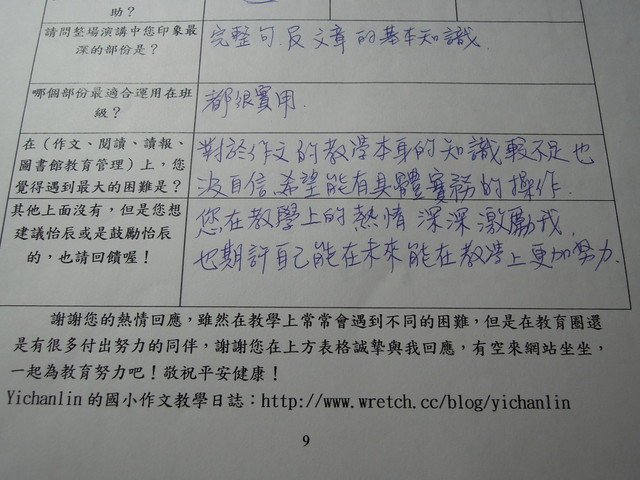 助？
請問整場演講中您印象最
深的部份是？
完整句.及文章的基本知識.
哪個部份最適合運用在班
級？
都很實用.
在（作文、閱讀、讀報、
圖書館教育管理）上，您
覺得遇到最大的困難是？
對於作文的教學本身的知識較不足也
沒自信.希望能有具體實務的操作.
其他上面沒有，但是您想
建議怡辰或是鼓勵怡辰
的，也請回饋喔！
您在教學上的熱情深深激勵我,
也期許自己能在未來能在教學上更加努力.
謝謝您的熱情回應，雖然在教學上常常會遇到不同的困難，但是在教育圈還
是有很多付出努力的同伴，謝謝您在上方表格誠摯與我回應，有空來網站坐坐，
一起為教育努力吧！敬祝平安健康！
Yichanlin 的國小作文教學日誌：http://www.wretch.cc/blog/yichanlin
9